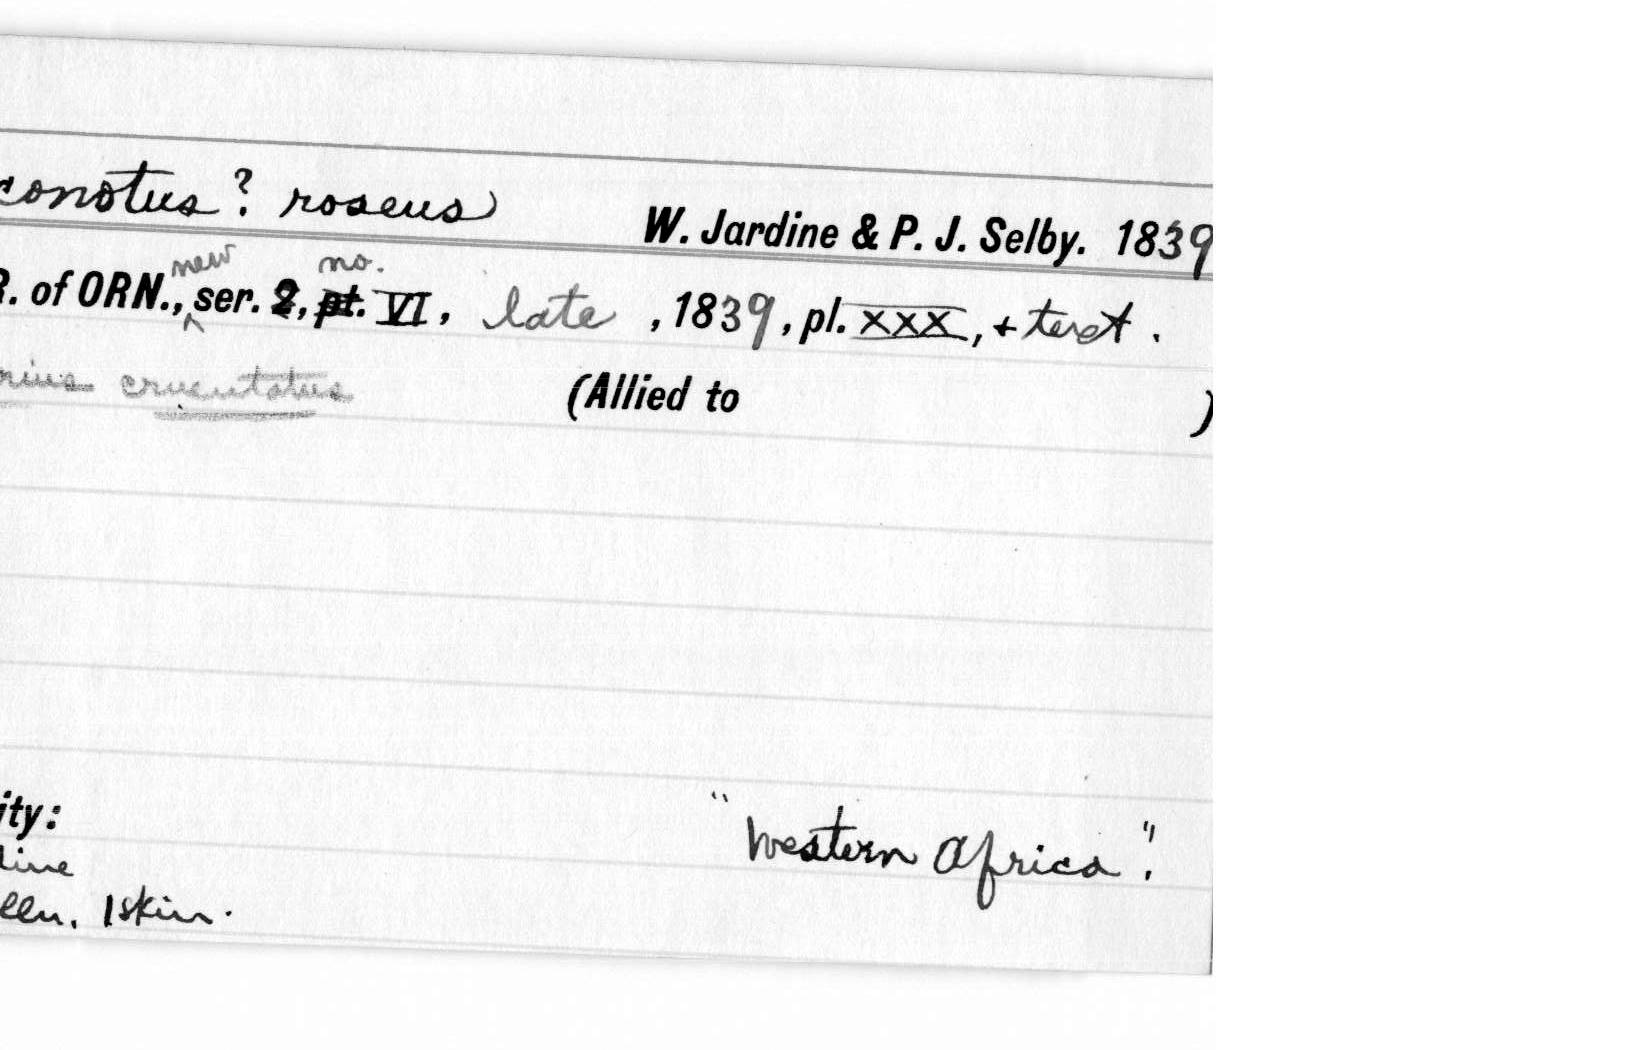 conotus ? roseus W. Jardine & P. J. Selby. 1839
R. of ORN., new ser. 2, pt. no. VI, late , 1839, pl. XXX, + text .
rius cruentatus (Allied to )
ity: "Western Africa".
dine
lln. 1 skin.